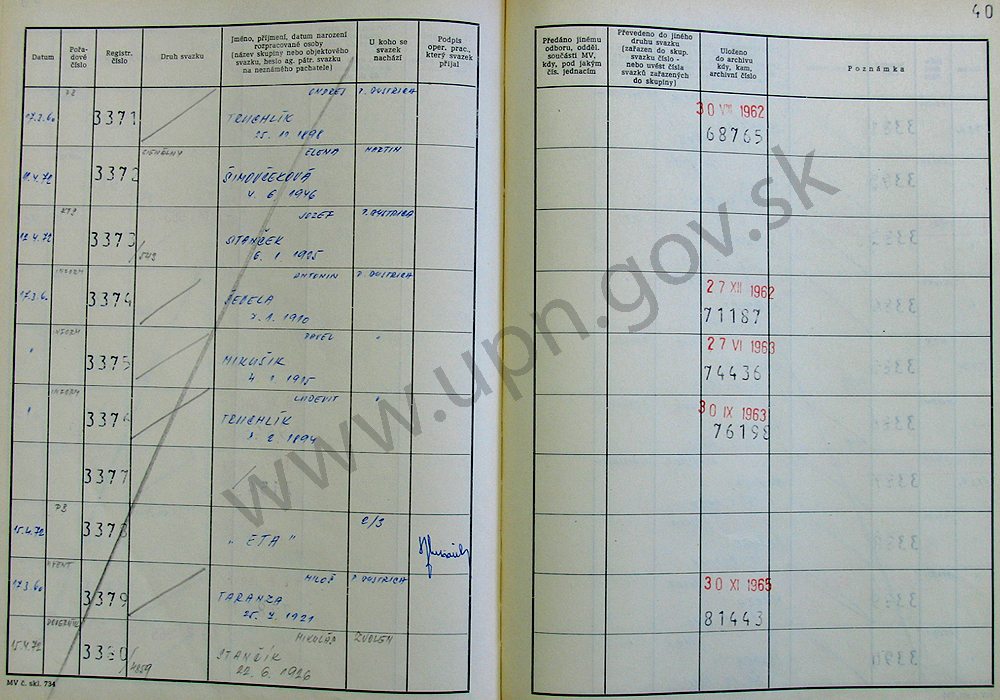 40
Datum
Pořa-
dové
číslo
Registr.
číslo
Druh svazku
Jméno, příjmení, datum narození
rozpracované osoby
(název skupiny nebo objektového
svazku, heslo ag. pátr. svazku
na neznámého pachatele)
U koho se
svazek
nachází
Podpis
oper. prac.,
který svazek
přijal
Předáno jinému
odboru, odděl.
součásti MV,
kdy, pod jakým
čís. jednacím
Převedeno do jiného
druhu svazku
(zařazen do skup.
svazku číslo -
nebo uvést čísla
svazků zařazených
do skupiny)
Uloženo
do archivu
kdy, kam,
archivní číslo
Poznámka
ONDREJ
17.3.60 3371 TRUCHLÍK
25. 11 1898
30 VIII 1962
68765
ELENA MARTIN
11.4.72 3372 ŠIMOVČEKOVÁ
4. 6 1946
JOZEF
12.4.72 3373 STANČEK
6. 1 1925
ANTONIN
17.3.6. 3374 ŠEDELA
1910
27 XII 1962
71187
PAVEL "
" 3375 MIKUŠIK
4 1 1915
27 VI 1963
74436
INFORM ĽUDEVIT "
" 3376 TRUCHLÍK
2 1894
30 IX 1963
76198
3377
PB C/3
15.4.72 3378 „ETA"
AGENT MILOŠ
17.3.60 3379 TARANZA
25. 7. 1921
30 XI 1965
81443
MIKULÁŠ ZVOLEN
15.4.72 3380/4859 STANČÍK
22. 6. 1926
MV č. skl. 734
www.upn.gov.sk